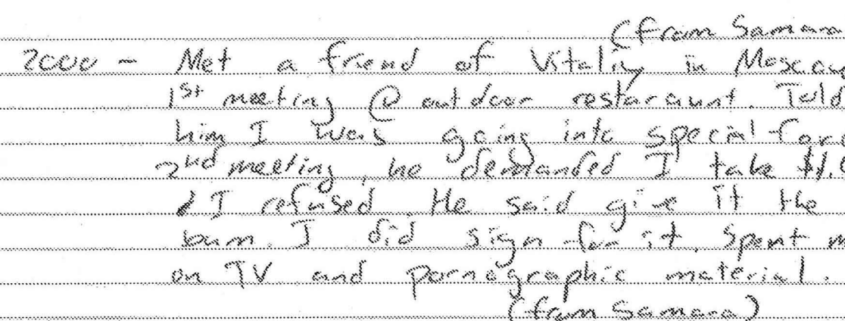 (from Samara
2000 - Met a friend of Vitaliy in Moscow
1st meeting @ outdoor restaraunt. Told
him I was going into special forc
2nd meeting, he demanded I take $1.0
& I refused. He said give it the
bum. I did sign for it. Spent m
on TV and pornographic material.
(from Samara)